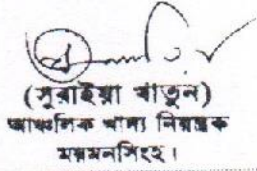 (সুরাইয়া খাতুন)
আঞ্চলিক খাদ্য নিয়ন্ত্রক
ময়মনসিংহ।